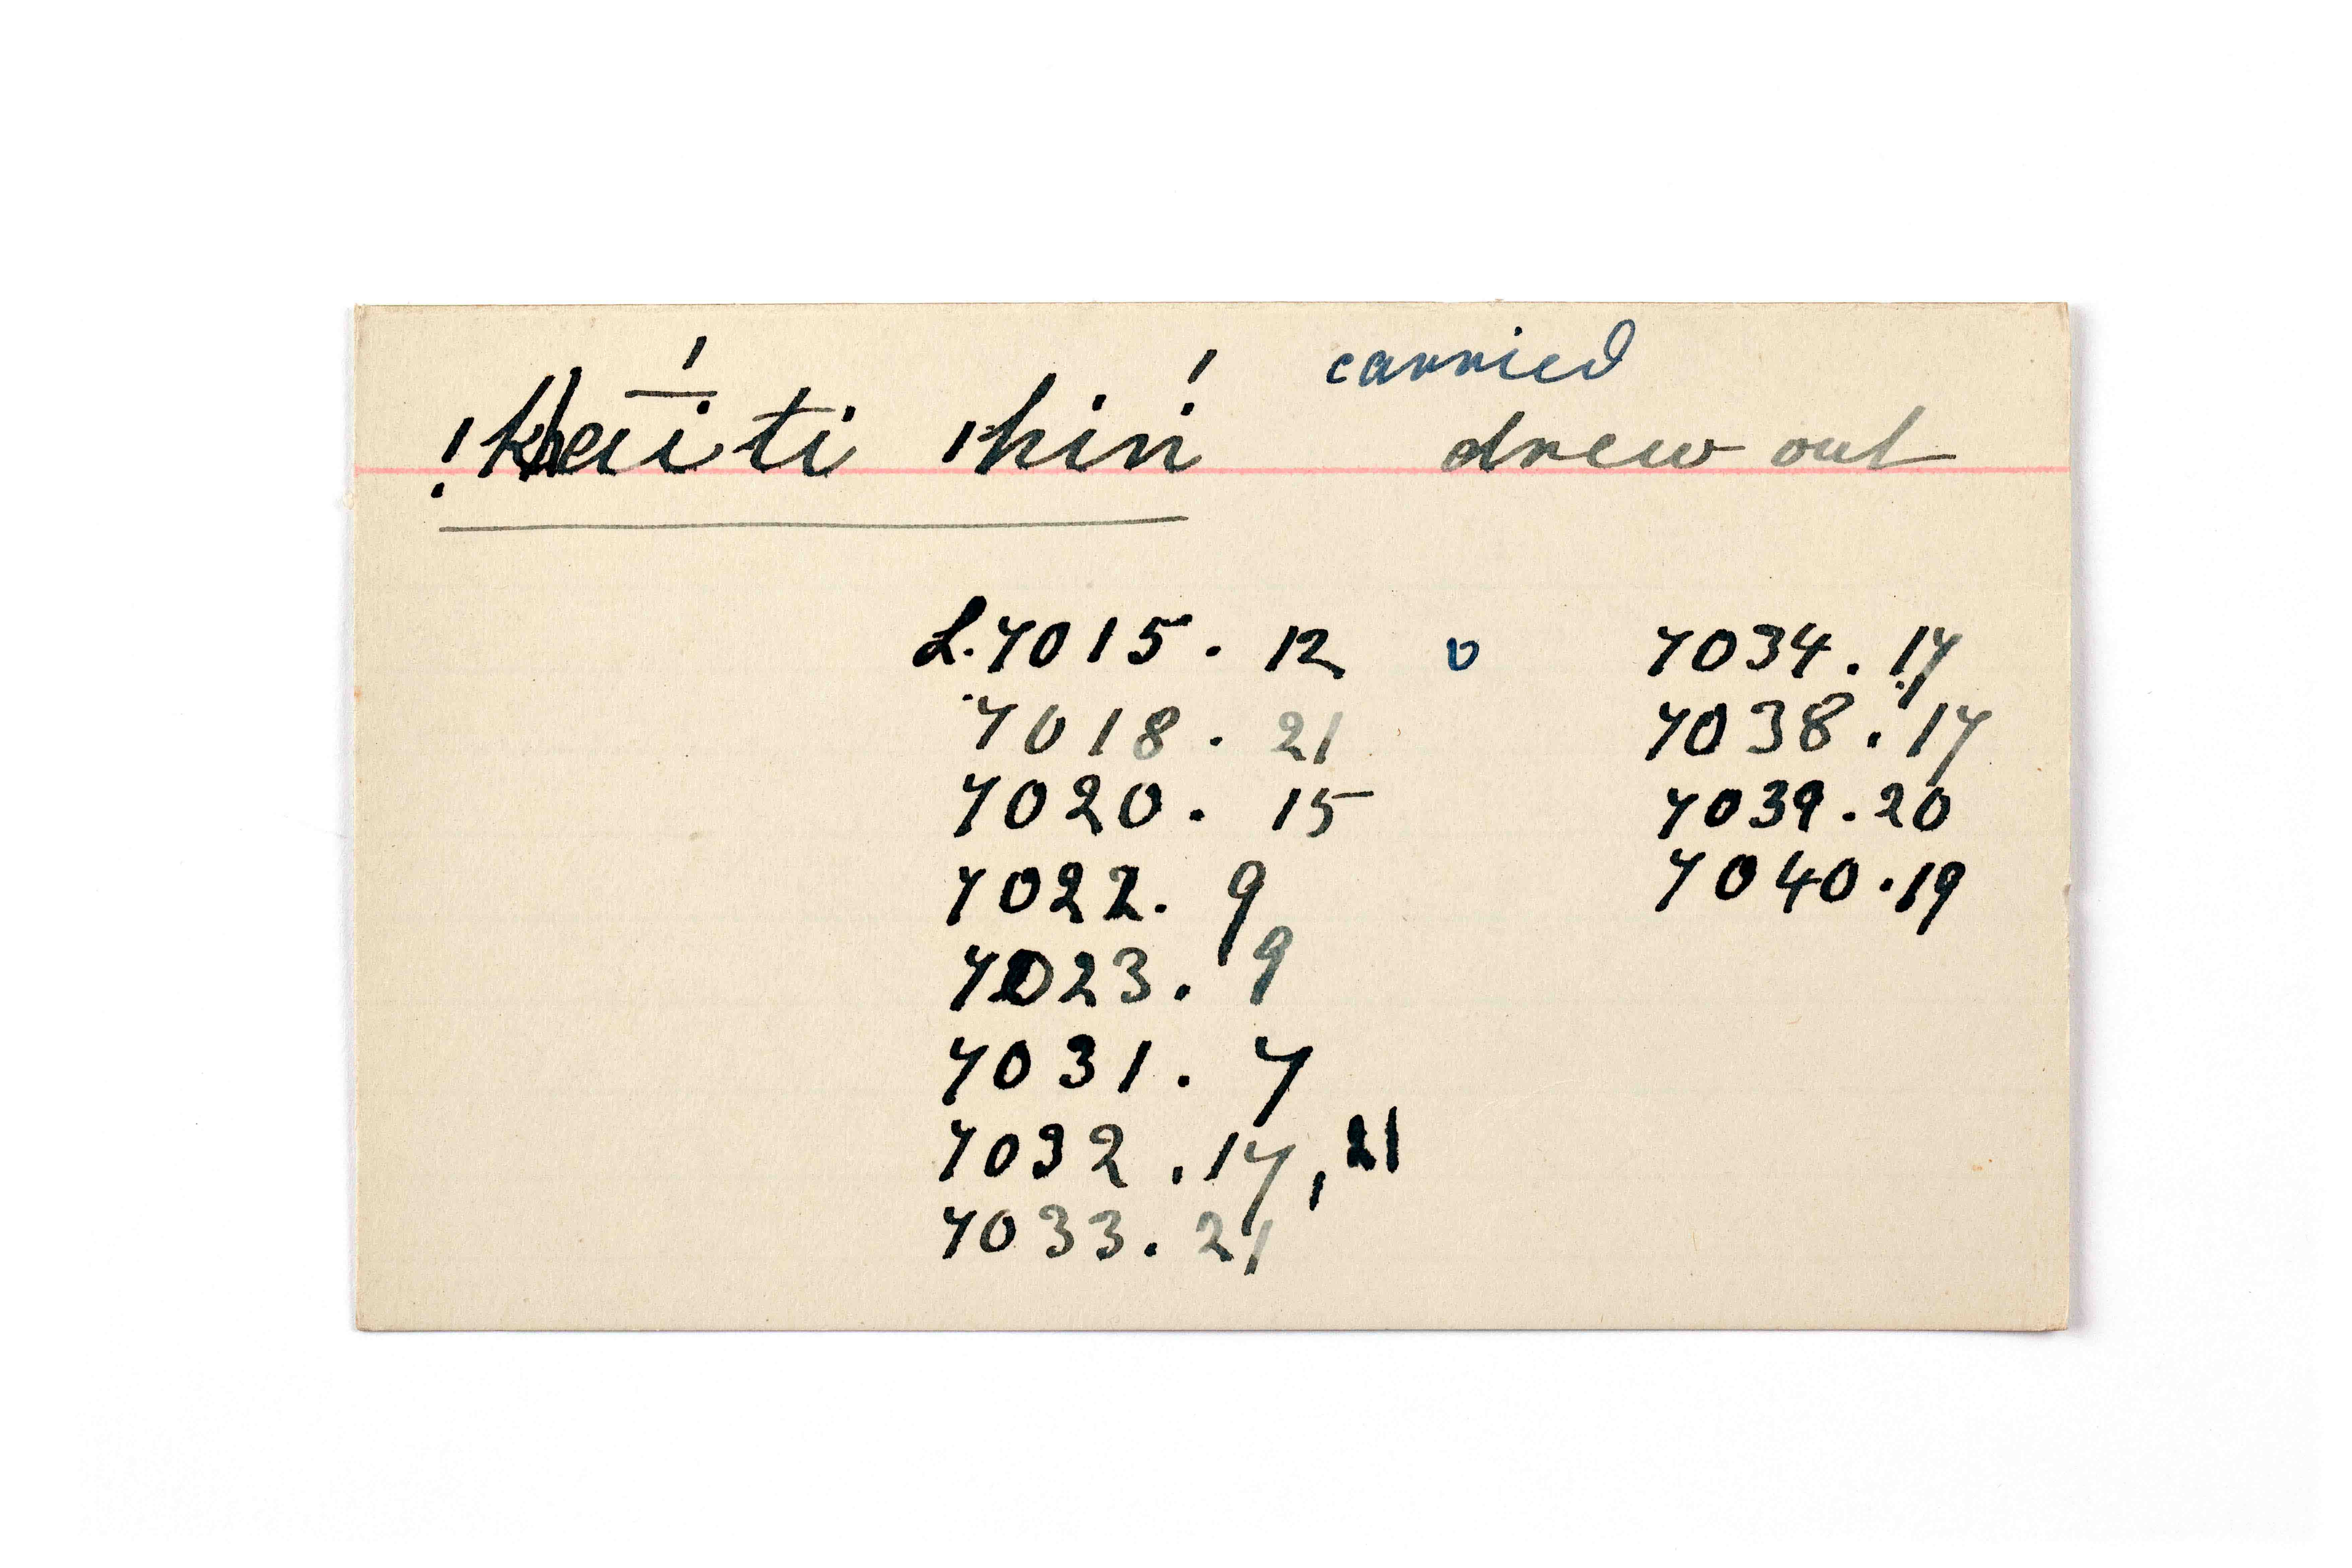 carried
!kai̱ti ıhiń drew out
L.7015. 12 o 7034. 17
7018. 21 7038. 17
7020. 15 7039. 20
7022. 9 7040. 19
7023. 9
7031. 7
7032. 17, 21
7033. 21